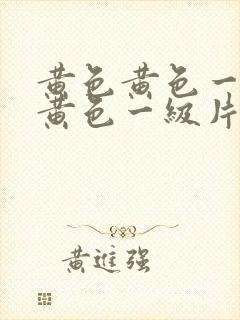 黄色黄色一
黄色一級片
黄進强